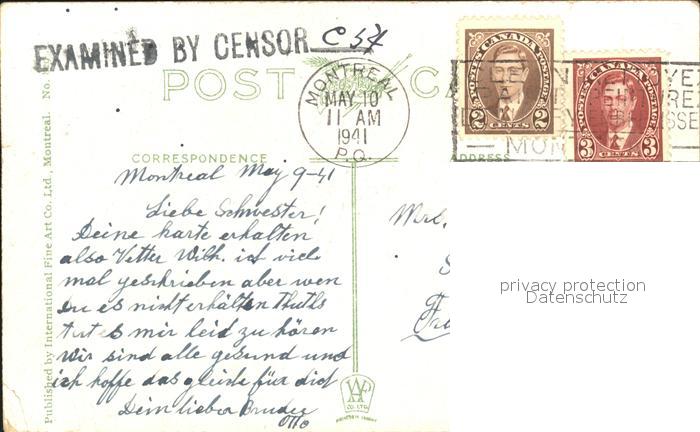 EXAMINED BY CENSOR C 54
POST CA
MONTREAL
MAY 10
11 AM
1941
P.Q.
POSTES CANADA POSTAGE
2 CENTS 2
POSTES CANADA POSTAGE
3 CENTS 3
MON
CORRESPONDENCE
ADDRESS
Montreal May 9-41
Liebe Schwester!
Deine karte erhalten
also Vetter Wilh. ich viele
mal geschrieben aber wen
du es nicht erhälten
es mir leid zu hören
Wir sind alle gesund und
ich hoffe das gleiche für dich
Dein lieber Bruder
Otto
Mrs.
privacy protection
Datenschutz
Published by International Fine Art Co. Ltd., Montreal. No.
CO. LTD.